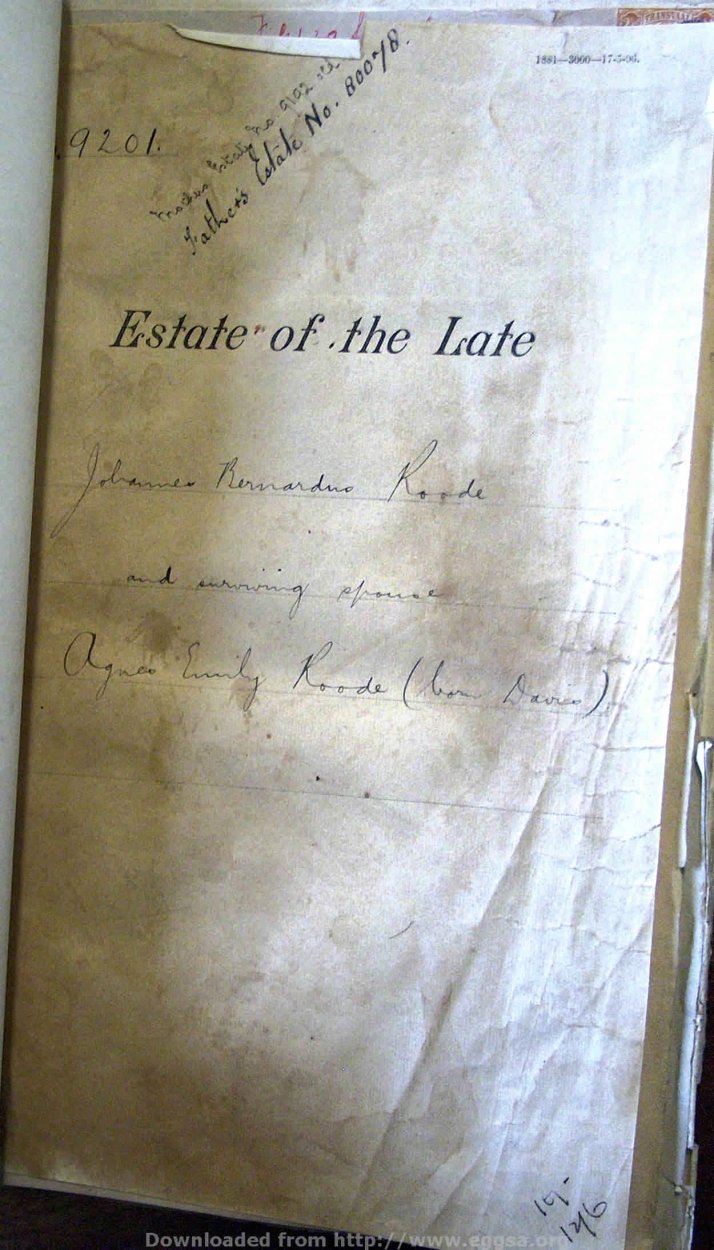 TRANSVAAL
1881—3000—17-5-06.
9201.
Mothers Estate No. 9192 old
Father's Estate No. 80078.
Estate of the Late
Johannes Bernardus Roode
and surviving spouse
Agnes Emily Roode (born Davis)
12/6
Downloaded from http://www.eggsa.org